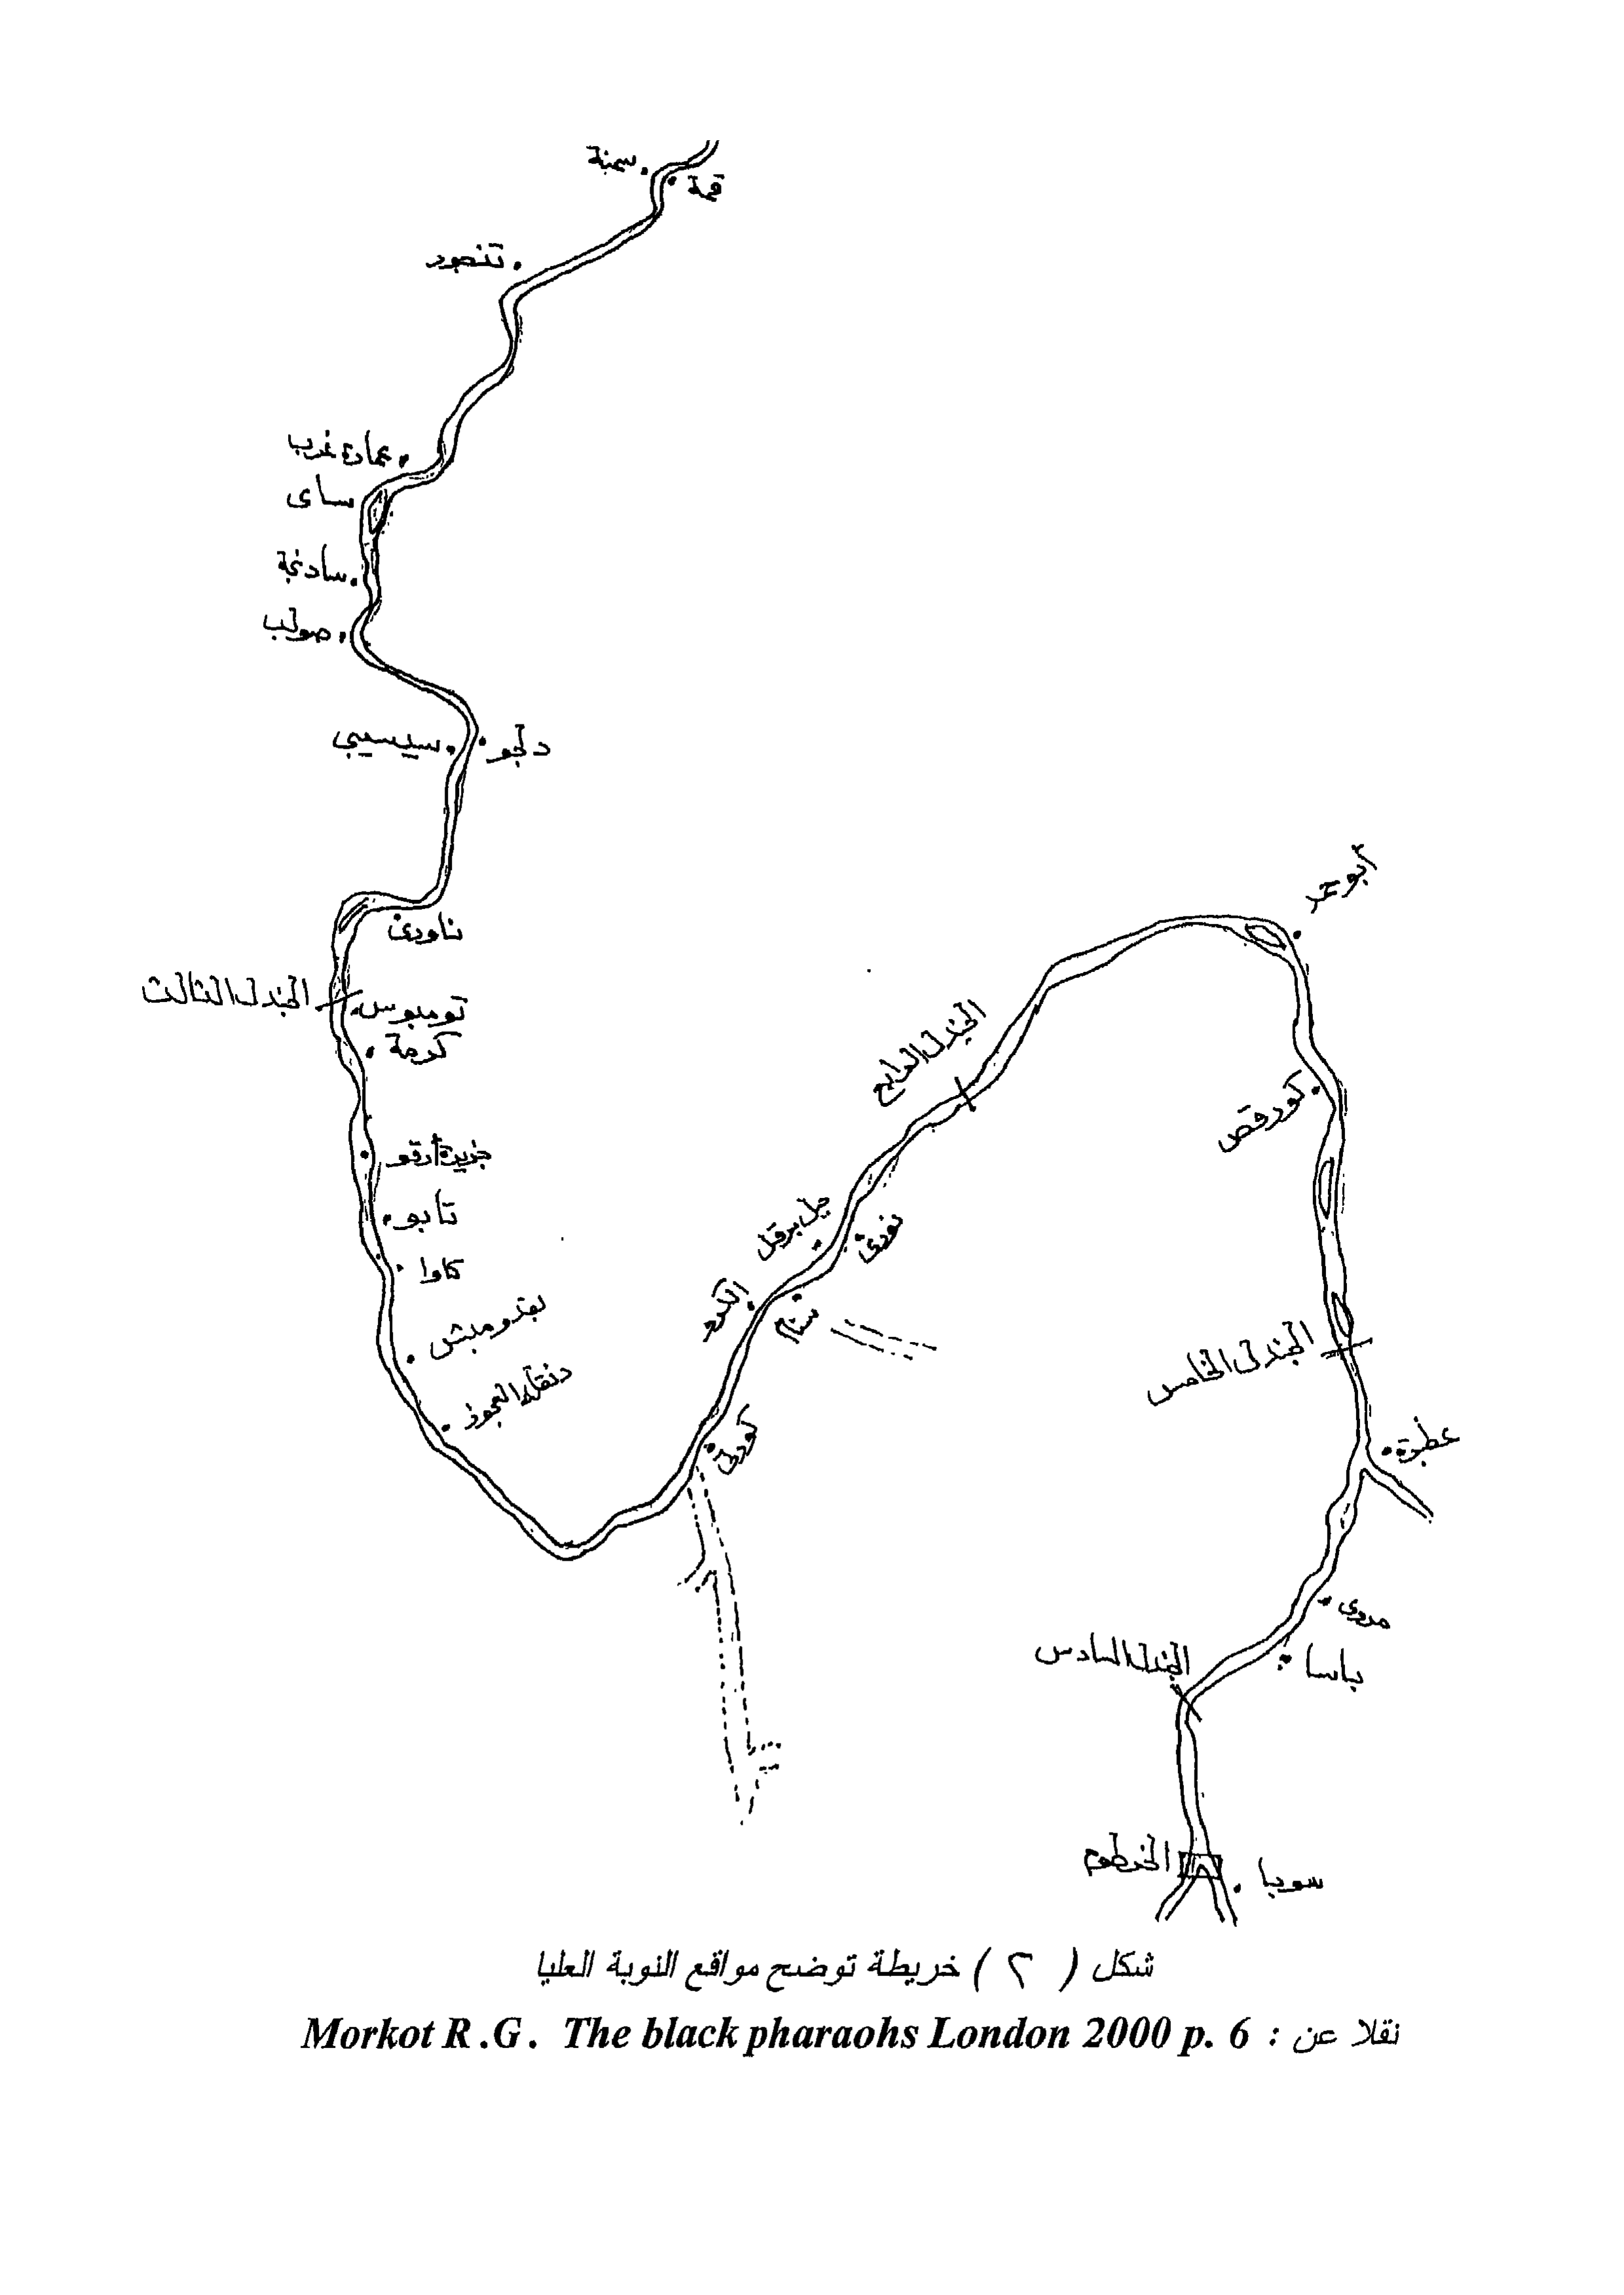 سمنة
قمة
تنجور
عمارة غرب
ساى
سادنجة
صولب
سيسيبي
دلجو
ناودى
الجندل الثالث
تومبوس
كرمة
جزيرة أرقو
تابو
كاوا
دنقلة العجوز
كورتى
الكرو
سنام
جبل برقل
نورى
الجندل الرابع
أبو حمد
كورقص
الجندل الخامس
عطبرة
مروى
باسا
الجندل السادس
الخرطوم
سوبا
شكل ( ٢ ) خريطة توضح مواقع النوبة العليا
نقلا عن : Morkot R .G . The black pharaohs London 2000 p. 6